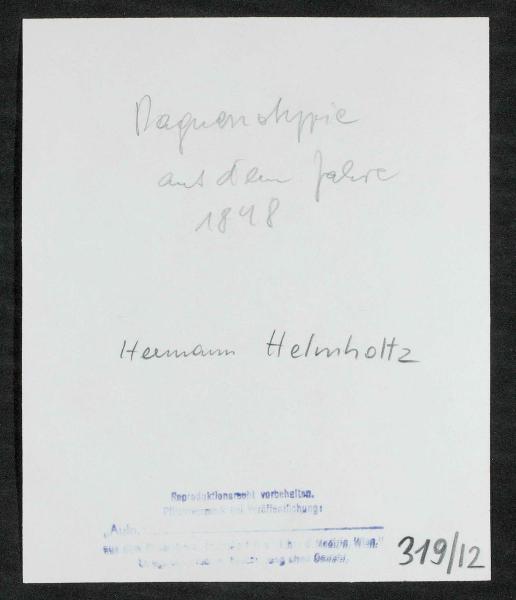 Daguerrotypie
aus dem Jahre
1848
Hermann Helmholtz
Reproduktionsrecht vorbehalten.
bei Veröffentlichung:
"Aufn.
aus den Medizin Wien."
319/12